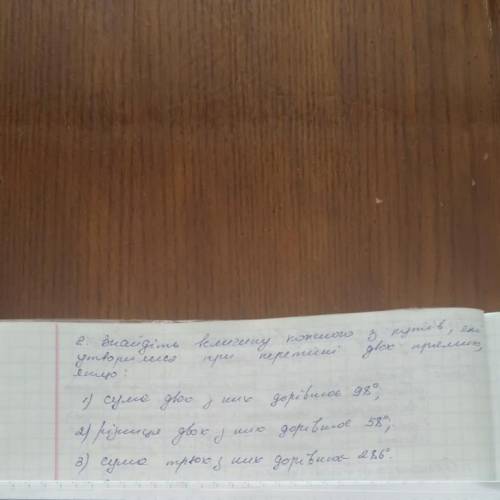 2. Знайдіть величину кожного з кутів, що
утворилися при перетині двох прямих,
якщо:
1) сума двох з них дорівнює 98°;
2) різниця двох з них дорівнює 58°;
3) сума трьох з них дорівнює 286°.